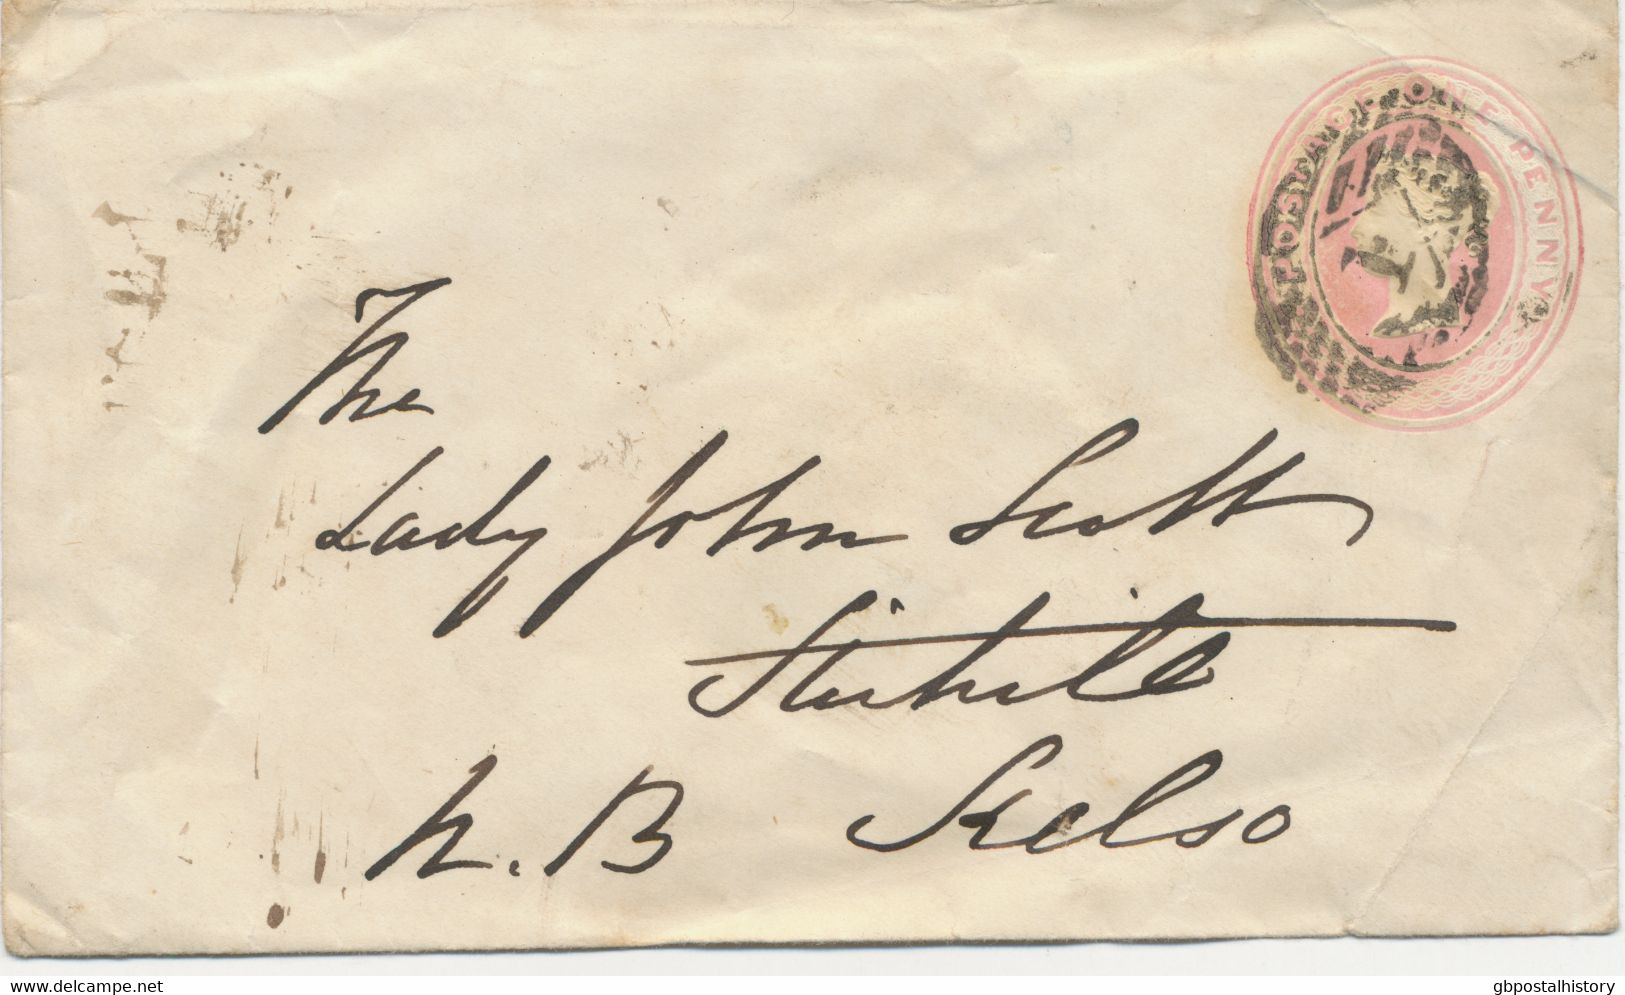 POSTAGE ONE PENNY
The
Lady John Scott
Stichill
Kelso
N.B
www.delcampe.net
gbpostalhistory